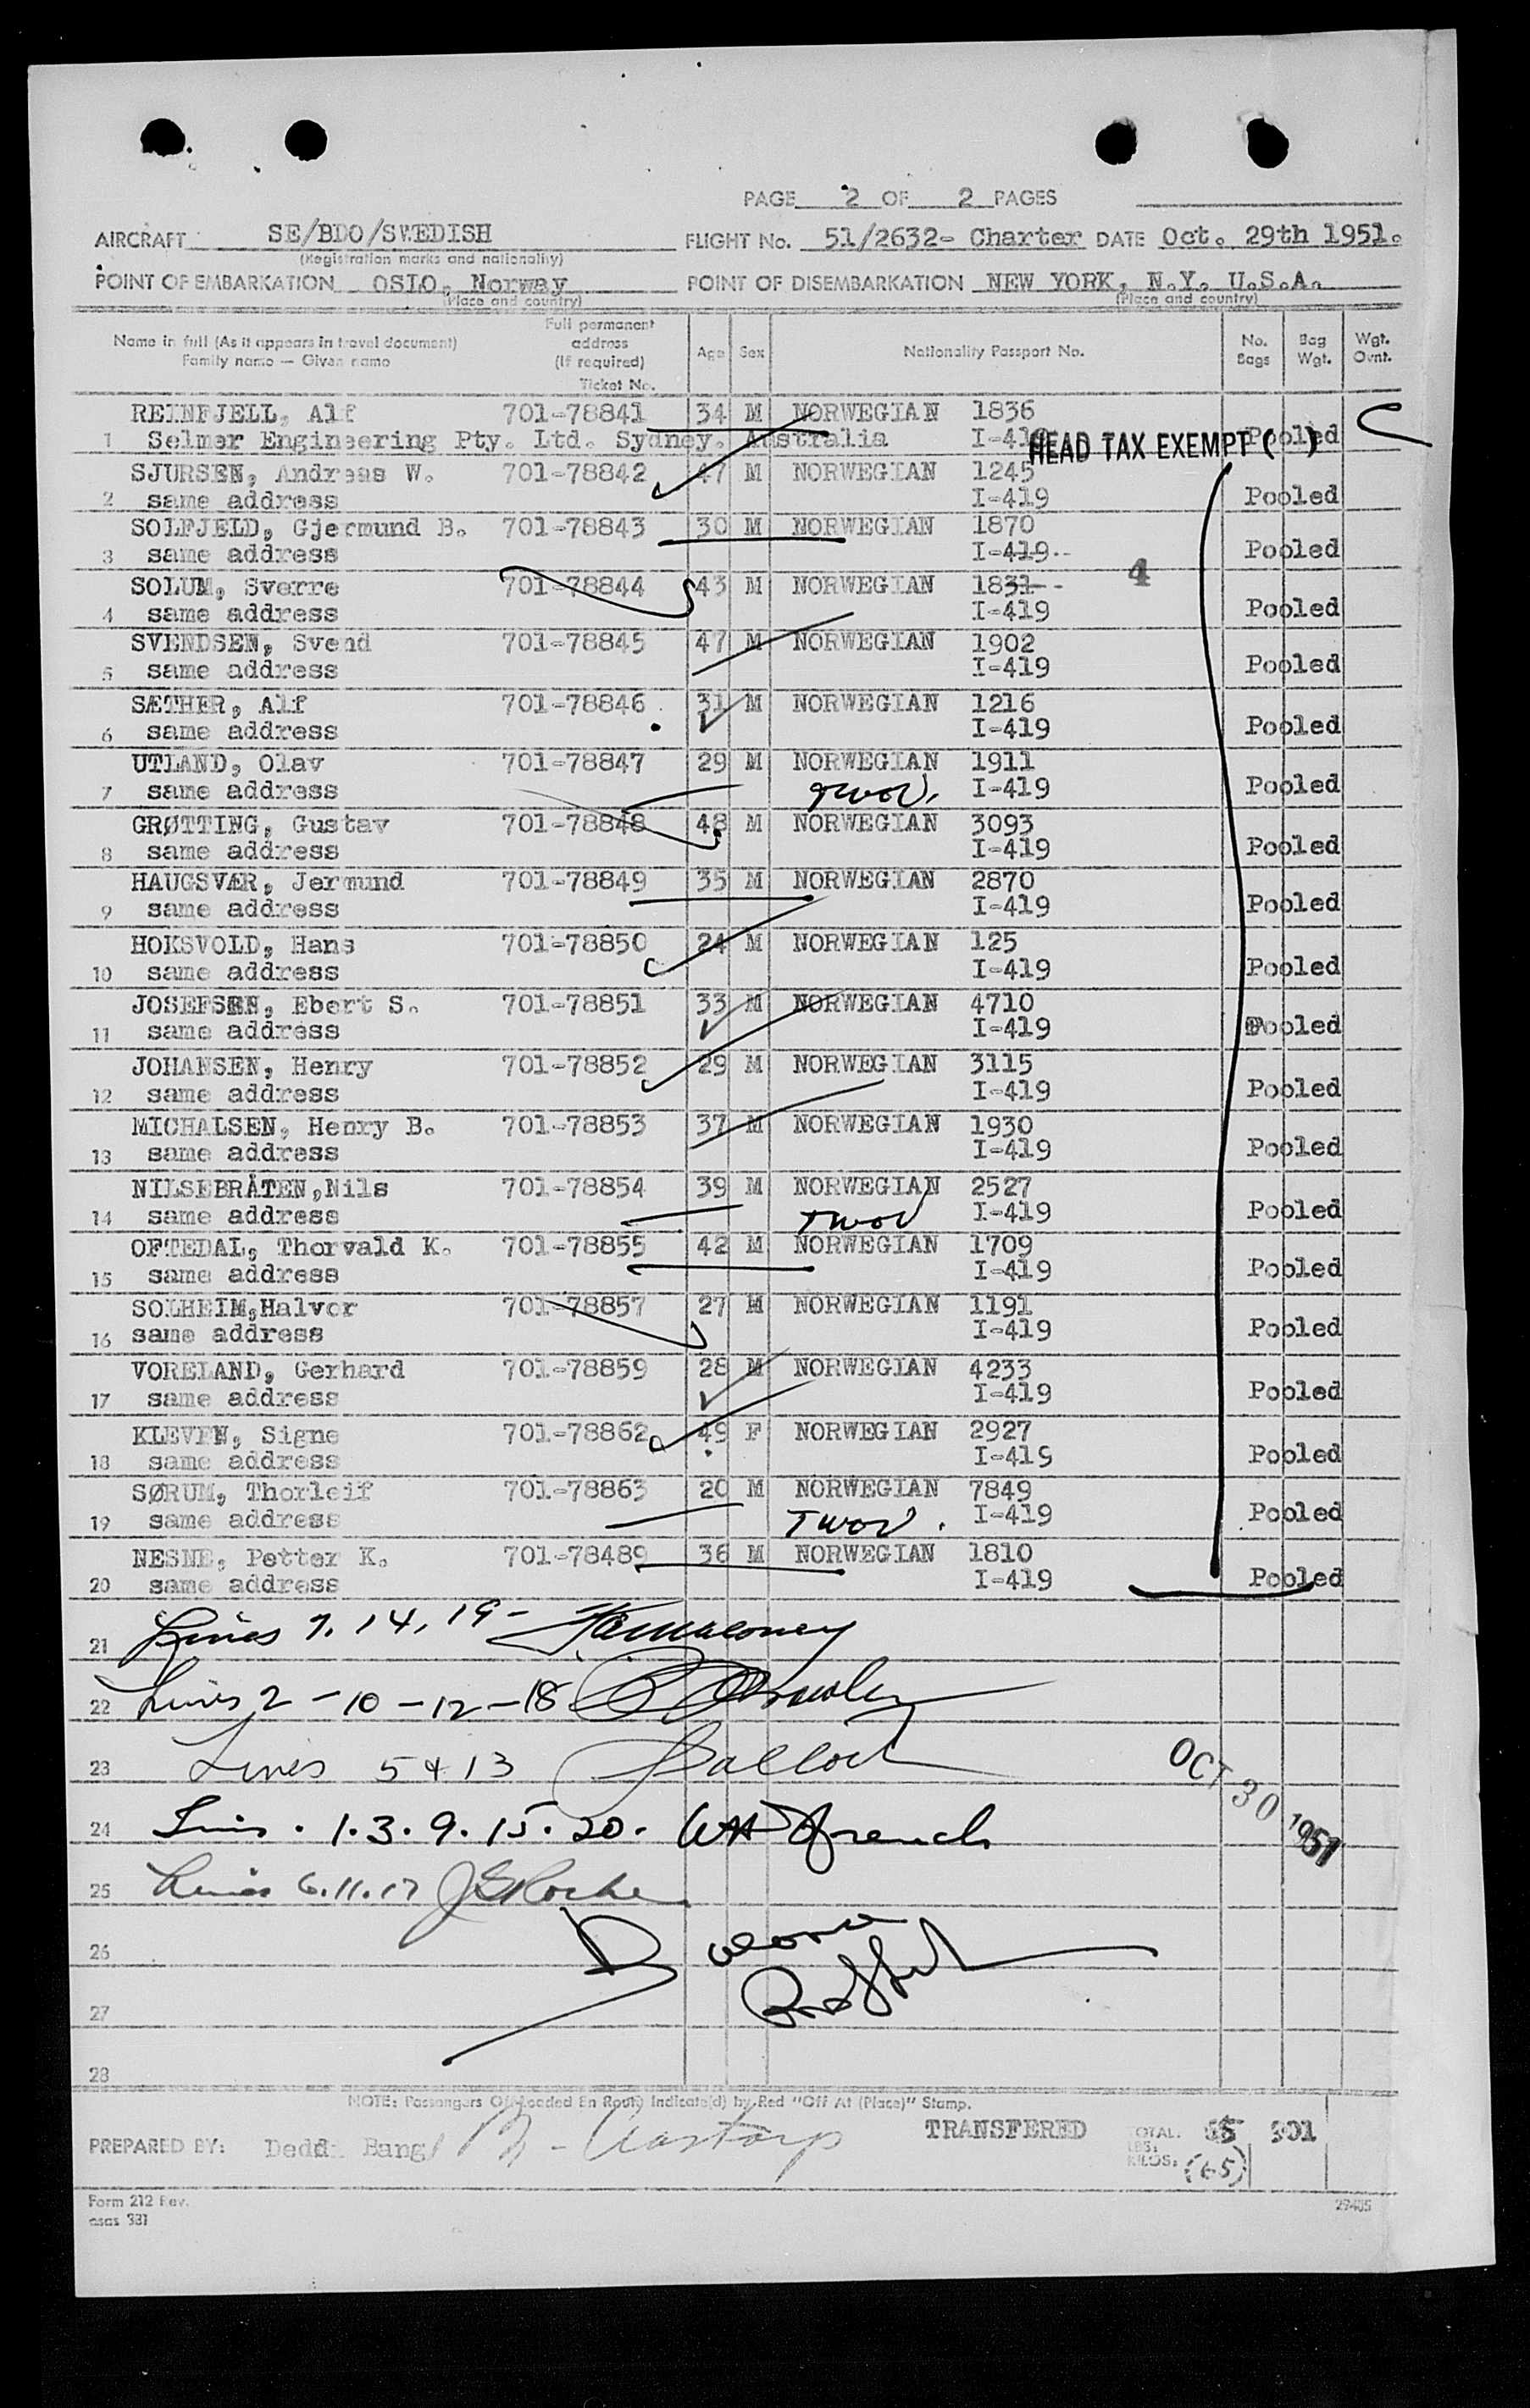 PAGE 2 OF 2 PAGES
AIRCRAFT SE/BDO/SWEDISH FLIGHT No. 51/2632- Charter DATE Oct. 29th 1951.
(Registration marks and nationality)
POINT OF EMBARKATION OSLO, Norway POINT OF DISEMBARKATION NEW YORK, N.Y. U.S.A.
(Place and country) (Place and country)
Name in full (As it appears in travel document)
Family name — Given name
Full permanent
address
(If required)
Ticket No.
Age Sex Nationality Passport No. No. Bags Bag Wgt. Wgt. Ovnt.
REINFJELL, Alf 701-78841 34 M NORWEGIAN 1836
1 Selmer Engineering Pty. Ltd. Sydney. Australia I-419 Pooled
HEAD TAX EXEMPT ( )
SJURSEN, Andreas W. 701-78842 47 M NORWEGIAN 1245
2 same address I-419 Pooled
SOLFJELD, Gjermund B. 701-78843 30 M NORWEGIAN 1870
3 same address I-419 Pooled
4
SOLUM, Sverre 701-78844 43 M NORWEGIAN 1831
4 same address I-419 Pooled
SVENDSEN, Svend 701-78845 47 M NORWEGIAN 1902
5 same address I-419 Pooled
SÆTHER, Alf 701-78846 31 M NORWEGIAN 1216
6 same address I-419 Pooled
UTLAND, Olav 701-78847 29 M NORWEGIAN 1911
7 same address TWOV. I-419 Pooled
GRØTTING, Gustav 701-78848 48 M NORWEGIAN 3093
8 same address I-419 Pooled
HAUGSVÆR, Jermund 701-78849 35 M NORWEGIAN 2870
9 same address I-419 Pooled
HOKSVOLD, Hans 701-78850 24 M NORWEGIAN 125
10 same address I-419 Pooled
JOSEFSEN, Ebert S. 701-78851 33 M NORWEGIAN 4710
11 same address I-419 Pooled
JOHANSEN, Henry 701-78852 29 M NORWEGIAN 3115
12 same address I-419 Pooled
MICHALSEN, Henry B. 701-78853 37 M NORWEGIAN 1930
13 same address I-419 Pooled
NILSEBRÅTEN,Nils 701-78854 39 M NORWEGIAN 2527
14 same address TWOV I-419 Pooled
OFTEDAL, Thorvald K. 701-78855 42 M NORWEGIAN 1709
15 same address I-419 Pooled
SOLHEIM,Halvor 701-78857 27 M NORWEGIAN 1191
16 same address I-419 Pooled
VORELAND, Gerhard 701-78859 28 M NORWEGIAN 4233
17 same address I-419 Pooled
KLEVEN, Signe 701-78862 49 F NORWEGIAN 2927
18 same address I-419 Pooled
SØRUM, Thorleif 701-78863 20 M NORWEGIAN 7849
19 same address TWOV. I-419 Pooled
NESNE, Petter K. 701-78489 36 M NORWEGIAN 1810
20 same address I-419 Pooled
21 Lines 7. 14, 19 -
22 Lines 2 - 10 - 12 - 18
23 Lines 5 & 13
OCT 30 1951
24 Lines . 1. 3. 9. 15. 20. WH French
25 Lines 6. 11. 17 Roche
26
27
28
NOTE: Passengers Offloaded En Route Indicate(d) by Red "Off At (Place)" Stamp.
PREPARED BY: Bang/ TRANSFERED TOTAL. 901
LBS.
KILOS. (65)
Form 212 Rev.
29405